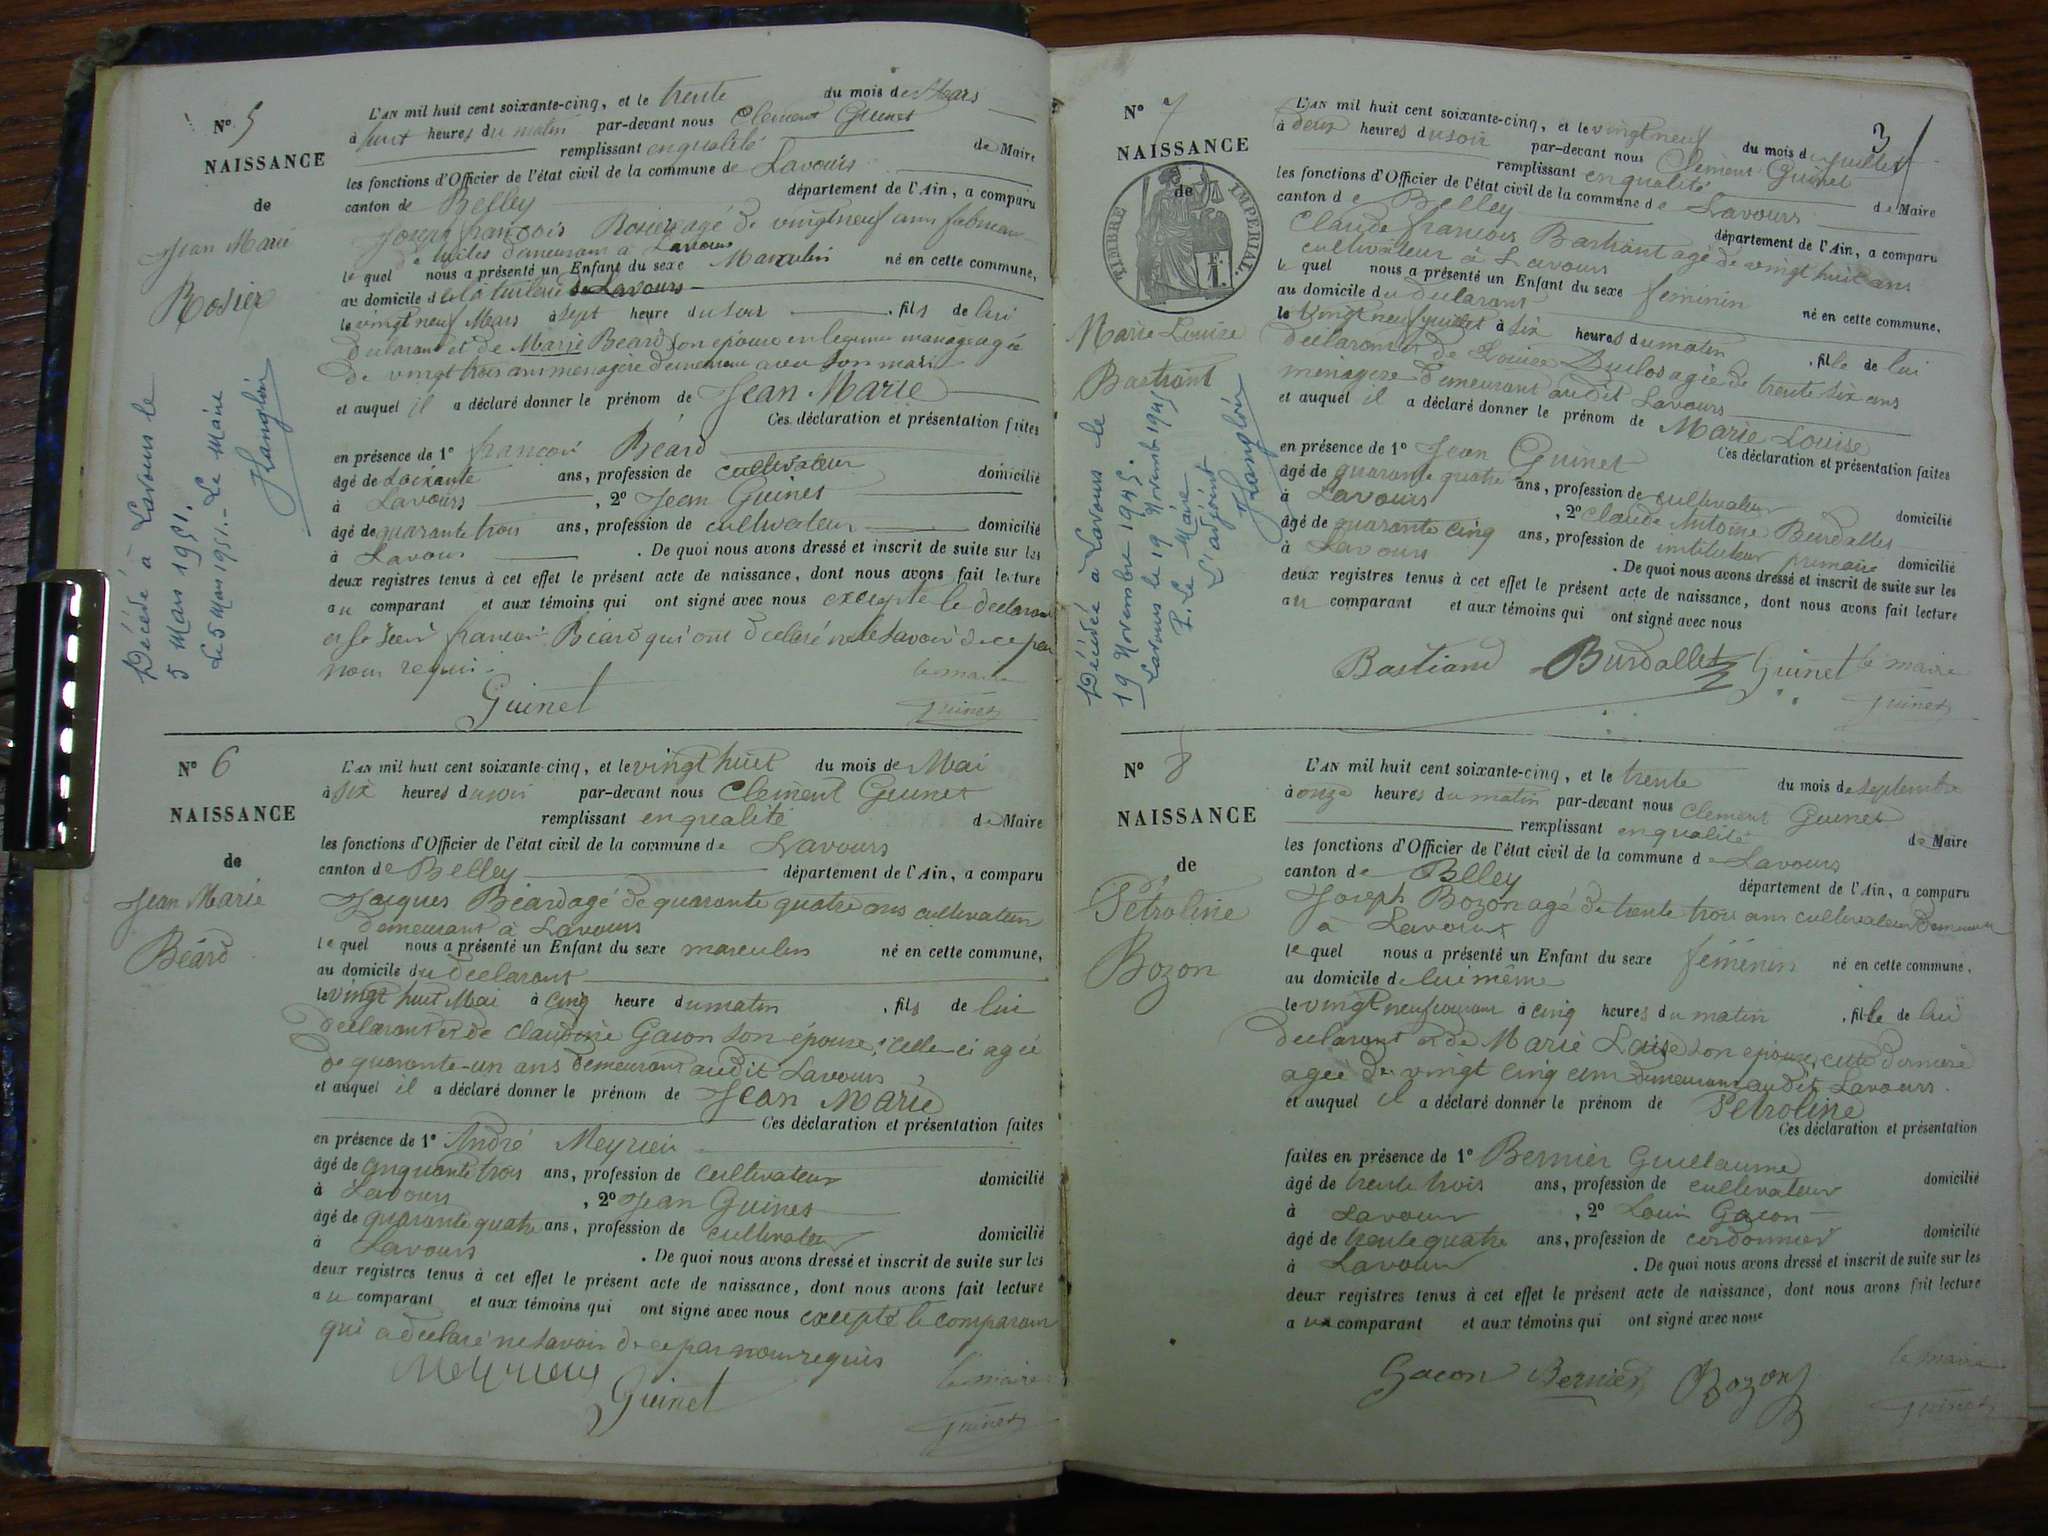 N° 5
NAISSANCE
de
Jean Marie
Rosier
Décédé à Lavours le
5 Mars 1951.
Le 5 Mars 1951. - Le Maire
L'AN mil huit cent soixante-cinq, et le trente du mois de Mars
à huit heures du matin par-devant nous Clement Guinet
remplissant en qualité de Maire
les fonctions d'Officier de l'état civil de la commune de Lavours
canton de Belley département de l'Ain, a comparu
Joseph françois Rosier agé de vingt neuf ans fabricant
de tuiles demeurant à Lavours
le quel nous a présenté un Enfant du sexe Masculin né en cette commune,
au domicile de la tuilerie de Lavours
le vingt neuf Mars à sept heure du soir fils de lui
declarant et de Marie Béard son epouse en legitime mariage agée
de vingt trois ans menagère demeurant avec son mari
et auquel il a déclaré donner le prénom de Jean Marie
Ces déclaration et présentation faites
en présence de 1° françois Béard
âgé de soixante ans, profession de cultivateur domicilié
à Lavours , 2° Jean Guinet
âgé de quarante trois ans, profession de cultivateur domicilié
à Lavours . De quoi nous avons dressé et inscrit de suite sur les
deux registres tenus à cet effet le présent acte de naissance, dont nous avons fait lecture
au comparant et aux témoins qui ont signé avec nous excepté le declarant
et le françois Béard qui ont declaré ne le savoir de ce par
nous requis
le maire
Guinet Guinet
N° 6
NAISSANCE
de
Jean Marie
Béard
L'AN mil huit cent soixante-cinq, et le vingt huit du mois de Mai
à six heures du soir par-devant nous Clement Guinet
remplissant en qualité de Maire
les fonctions d'Officier de l'état civil de la commune de Lavours
canton de Belley département de l'Ain, a comparu
Jacques Béard agé de quarante quatre ans cultivateur
demeurant à Lavours
le quel nous a présenté un Enfant du sexe masculin né en cette commune,
au domicile du declarant
le vingt huit Mai à cinq heure du matin , fils de lui
declarant et de claudine Gacon son épouse, celle ci agée
de quarante-un ans demeurant audit Lavours
et auquel il a déclaré donner le prénom de Jean Marie
Ces déclaration et présentation faites
en présence de 1° André Meyrieu
âgé de cinquante trois ans, profession de cultivateur domicilié
à Lavours , 2° Jean Guinet
âgé de quarante quatre ans, profession de cultivateur domicilié
à Lavours . De quoi nous avons dressé et inscrit de suite sur les
deux registres tenus à cet effet le présent acte de naissance, dont nous avons fait lecture
au comparant et aux témoins qui ont signé avec nous excepté le comparant
qui a declaré ne savoir de ce par nous requis
le maire
Guinet Guinet
3
N° 7
NAISSANCE
de
TIMBRE IMPERIAL
Marie Louise
Bastiant
Décédée à Lavours le
19 Novembre 1945.
Lavours le 19 Novembre 1945
P. Le Maire
L'adjoint
L'AN mil huit cent soixante-cinq, et le vingt neuf du mois de juillet
à deux heures du soir par-devant nous Clément Guinet
remplissant en qualité de Maire
les fonctions d'Officier de l'état civil de la commune de Lavours
canton de Belley département de l'Ain, a comparu
Claude françois Bastiant agé de vingt huit ans
cultivateur à Lavours
le quel nous a présenté un Enfant du sexe féminin né en cette commune,
au domicile du declarant
le vingt neuf juillet à six heures du matin , fille de lui
declarant et de Louise Duclos agée de trente six ans
ménagère demeurant audit Lavours
et auquel il a déclaré donner le prénom de Marie Louise
Ces déclaration et présentation faites
en présence de 1° Jean Guinet
âgé de quarante quatre ans, profession de cultivateur domicilié
à Lavours , 2° Claude Antoine Burdallet
âgé de quarante cinq ans, profession de instituteur primaire domicilié
à Lavours . De quoi nous avons dressé et inscrit de suite sur les
deux registres tenus à cet effet le présent acte de naissance, dont nous avons fait lecture
au comparant et aux témoins qui ont signé avec nous
Bastiand Burdallet Guinet le maire
Guinet
N° 8
NAISSANCE
de
Pétroline
Bozon
L'AN mil huit cent soixante-cinq, et le trente du mois de septembre
à onze heures du matin par-devant nous Clement Guinet
remplissant en qualité de Maire
les fonctions d'Officier de l'état civil de la commune de Lavours
canton de Blley département de l'Ain, a comparu
Joseph Bozon agé de trente trois ans cultivateur demeurant
à Lavours
le quel nous a présenté un Enfant du sexe féminin né en cette commune,
au domicile de lui même
le vingt neuf courant à cinq heures du matin , fille de lui
declarant et de Marie son epouse, cette derniere
agée de vingt cinq ans demeurant audit Lavours.
et auquel il a déclaré donner le prénom de Pétroline
Ces déclaration et présentation
faites en présence de 1° Bernier Guillaume
âgé de trente trois ans, profession de cultivateur domicilié
à Lavours , 2° Louis Gacon
âgé de trente quatre ans, profession de cordonnier domicilié
à Lavours . De quoi nous avons dressé et inscrit de suite sur les
deux registres tenus à cet effet le présent acte de naissance, dont nous avons fait lecture
au comparant et aux témoins qui ont signé avec nous
Gacon Bernier Bozon le maire
Guinet